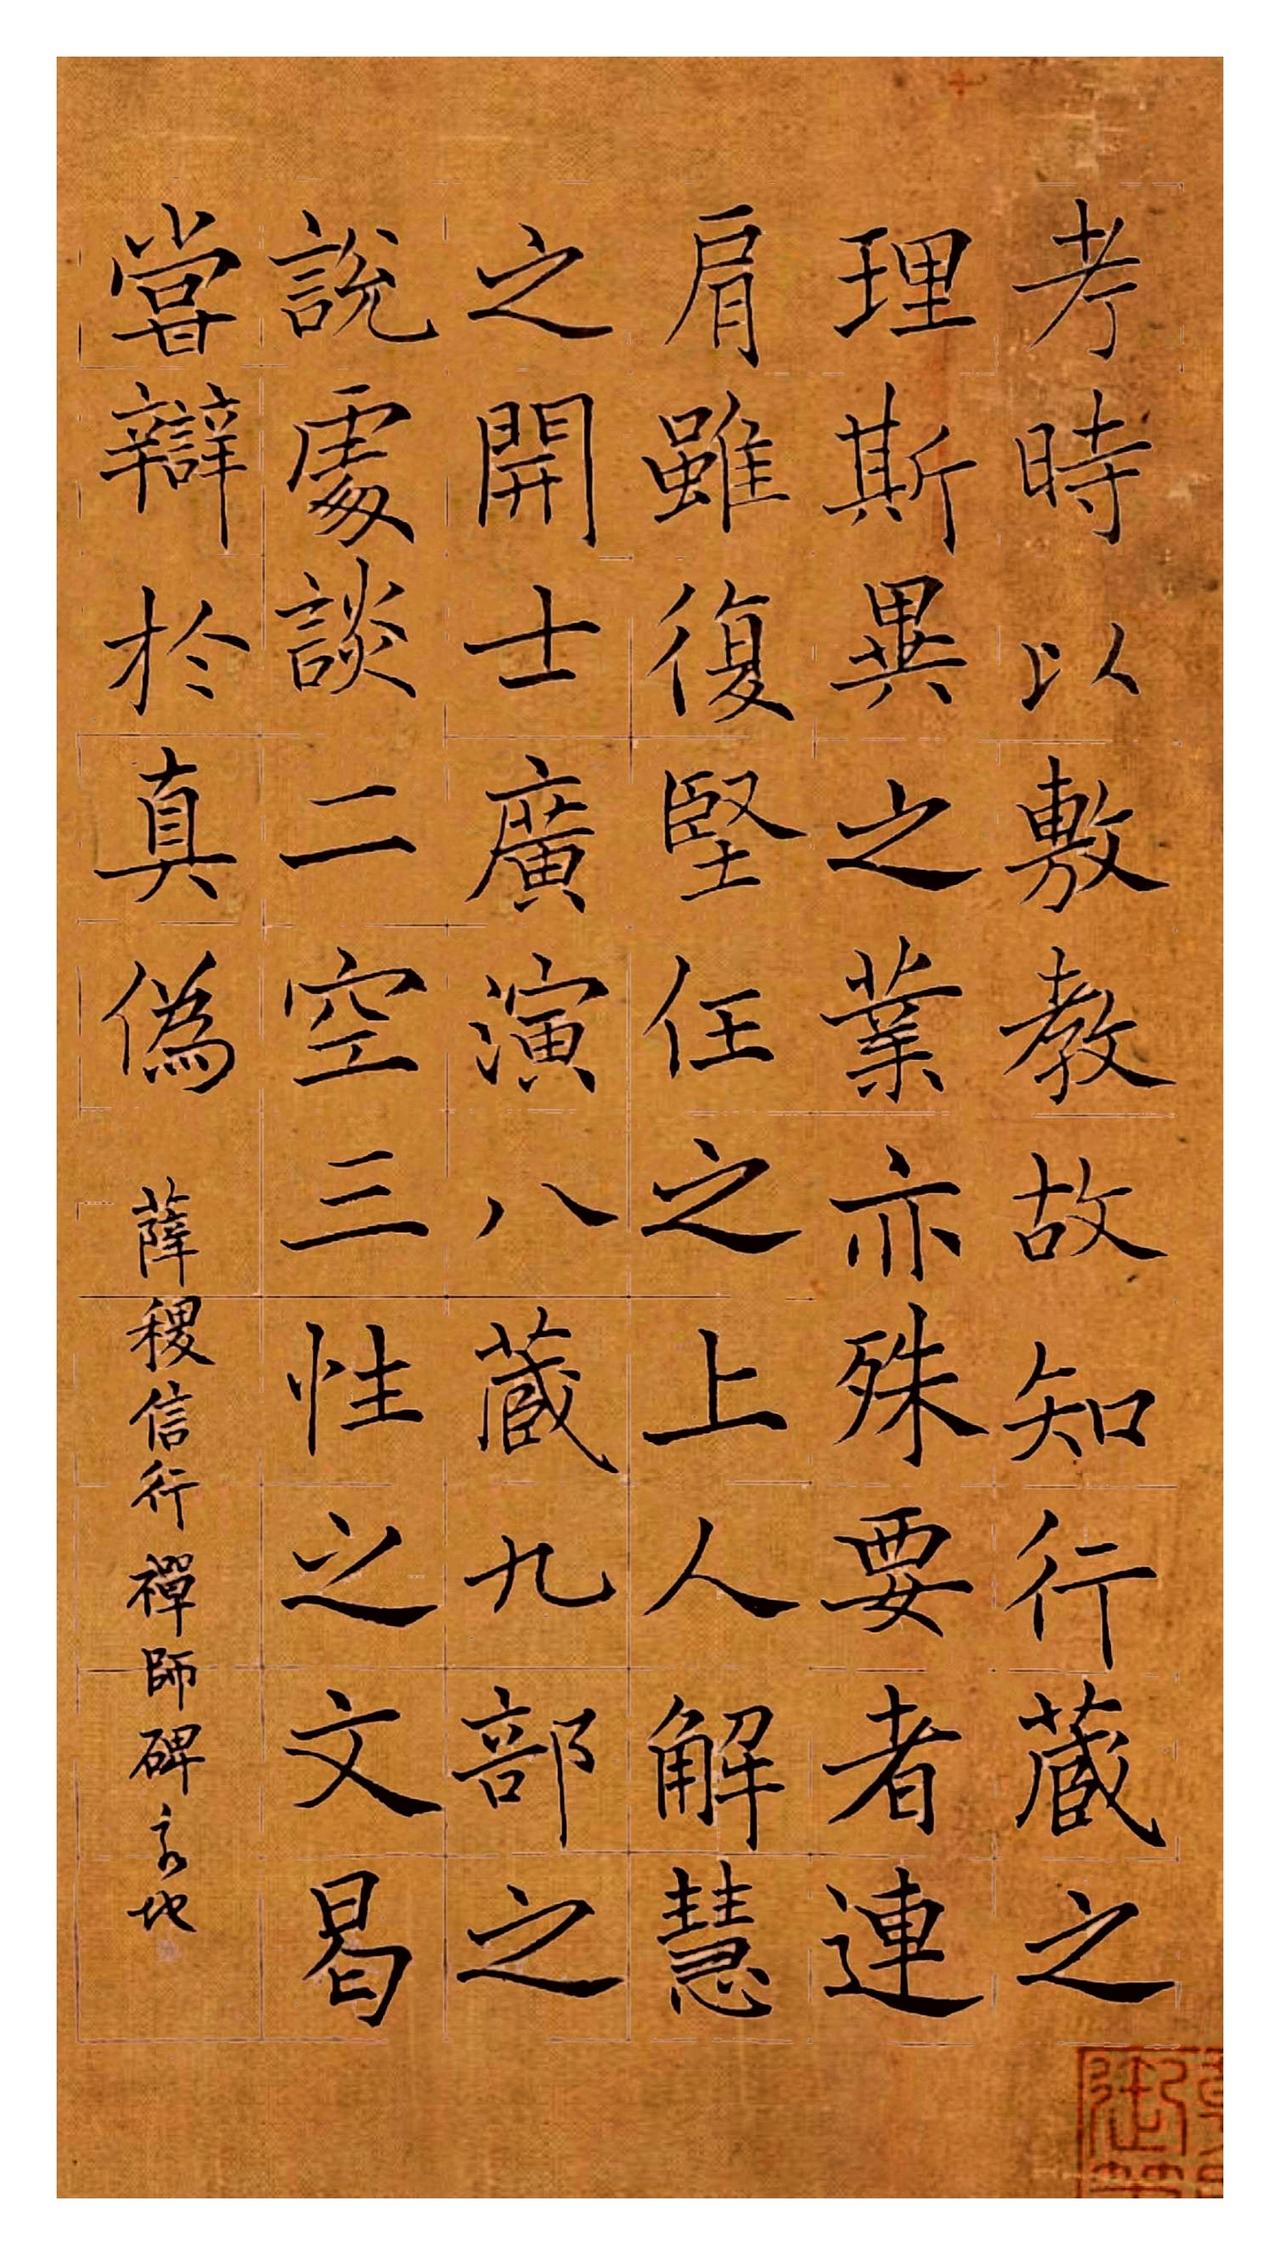 考時以敷教故知行蔵之
理斯異之業亦殊要者連
肩雖復堅任之上人解慧
之開士廣演八蔵九部之
說處談二空三性之文曷
嘗辯於真偽
薛稷信行禪師碑